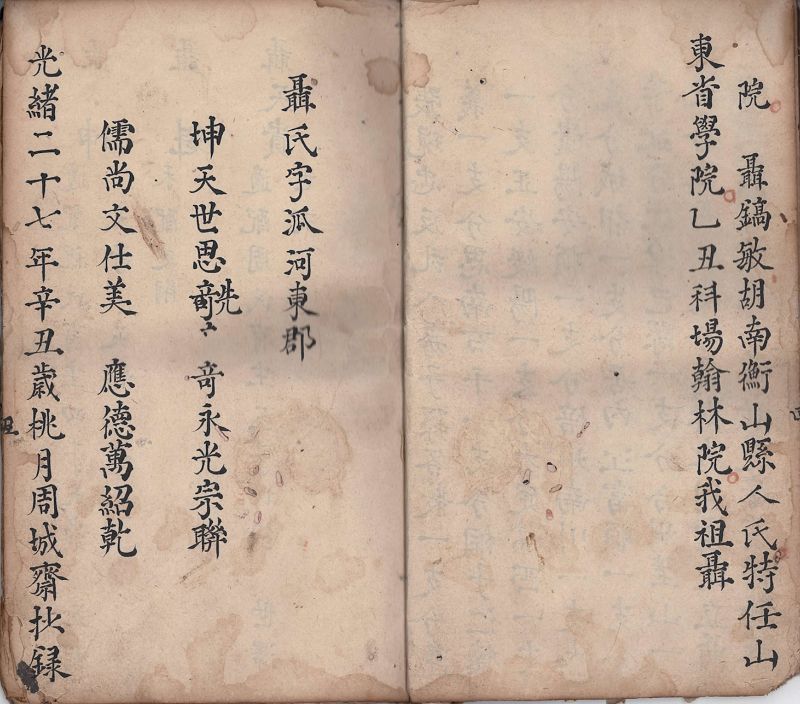 院　聶鎬敏胡南衡山縣人氏特任山
東省學院乙丑科場翰林院我祖聶
聶氏字派河東郡
坤天世思 先 奇永光宗聯
儒尚文仕美　應德萬紹乾
光緒二十七年辛丑歲桃月周城齋抄録